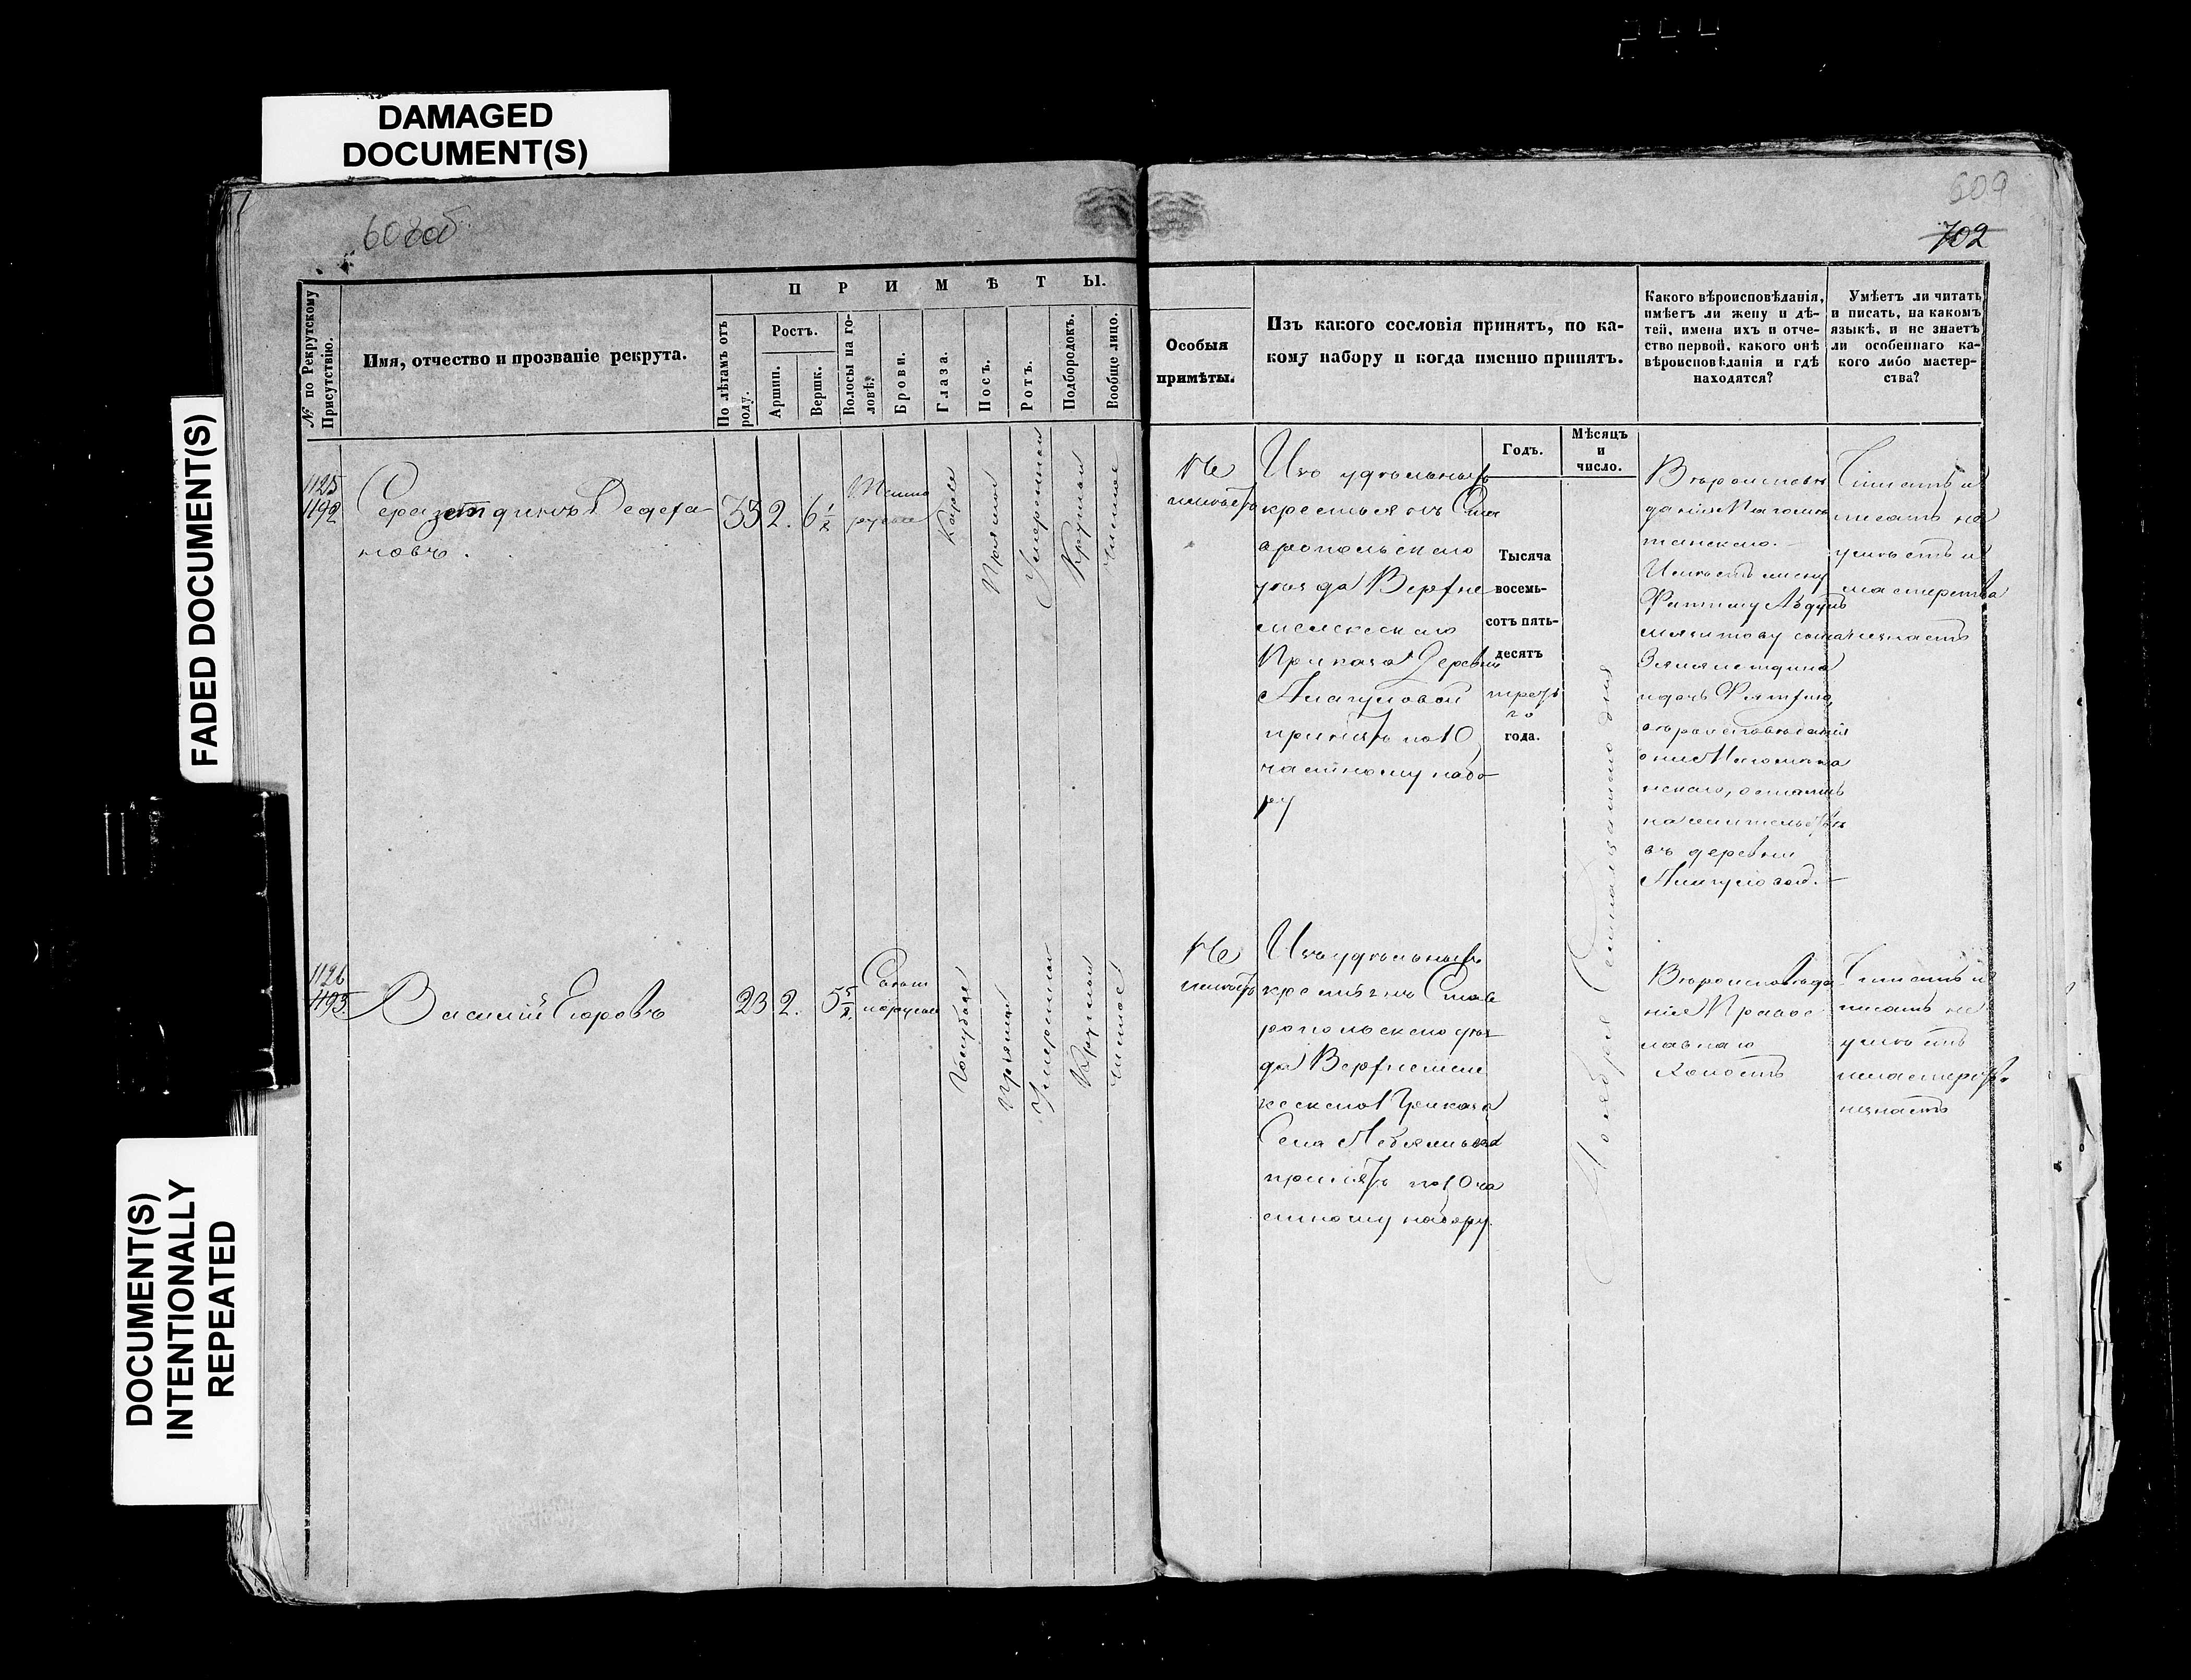 DAMAGED
DOCUMENT(S)
FADED DOCUMENT(S)
DOCUMENT(S)
INTENTIONALLY
REPEATED
609
702
№ по Рекрутскому
Присутствію.
Имя, отчество и прозваніе рекрута.
ПРИМѢТЫ.
По лѣтамъ отъ
роду.
Ростъ.
Аршин.
Вершк.
Волосы на го-
ловѣ.
Брови.
Глаза.
Носъ.
Ротъ.
Подбородокъ.
Вообще лицо.
Особыя
примѣты.
Изъ какого сословія принятъ, по ка-
кому набору и когда именно принятъ.
Какого вѣроисповѣданія,
имѣетъ ли жену и дѣ-
тей, имена ихъ и отче-
ство первой, какого онѣ
вѣроисповѣданія и гдѣ
находятся?
Умѣетъ ли читать
и писать, на какомъ
языкѣ, и не знаетъ
ли особеннаго ка-
кого либо мастер-
ства?
Годъ.
Мѣсяцъ
и
число.
1125
1192
35
2.
6 1/2
Темно
русые
Каріе
Прямой
Умеренный
Круглый
Чистое
Не
имѣетъ
Изъ удѣльныхъ
крестьянъ Ста
вропольскаго
уѣзда Верхне
Приказа деревни
принятъ по 10
частному набо
ру
Тысяча
восемь-
сотъ пять-
десятъ
третья
го
года.
Ноября Семнадцатаго дня
Вѣроисповѣ
данія Магоме
танскаго.
Имѣетъ жену
вѣроисповѣданія
они Магомета
нскаго,
въ деревни
Читать и
писать не
умѣетъ и
мастерства
незнаетъ
1126
495.
Василій Егоровъ
23
2.
5 5/8.
Голубые
Прямой
Умеренный
Круглый
Чистое
Не
имѣетъ
Изъ удѣльныхъ
крестьянъ Ставро
польскаго уѣз
да Верхнеме
кескаго Приказа
Села
принятъ по 10 ча
стному набору.
Вѣроисповѣда
нія Правос
лавнаго
Холостъ
Читать и
писать не
умѣетъ
мастерств.
незнаетъ